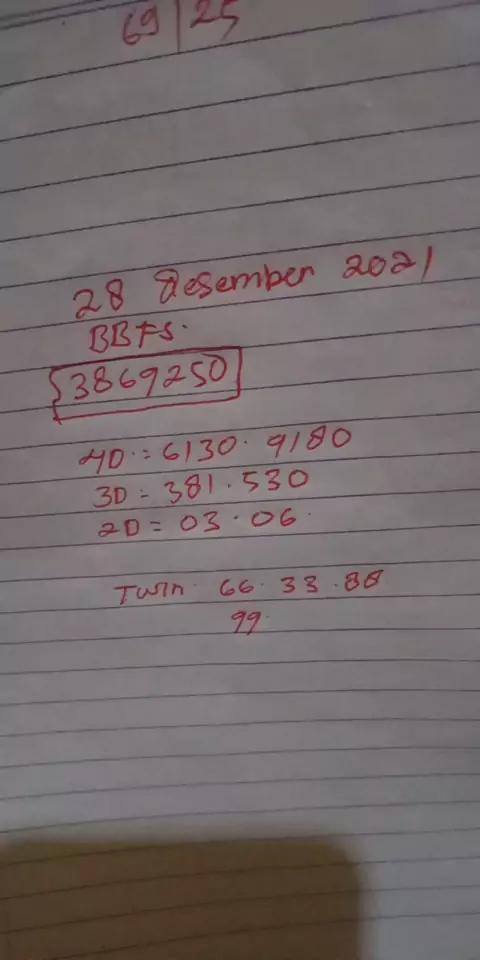 69 | 25
28 Desember 2021
BBFS.
3869250
4D.= 6130. 9180
3D = 381. 530
2D = 03. 06.
Twin. 66. 33. 88
99.